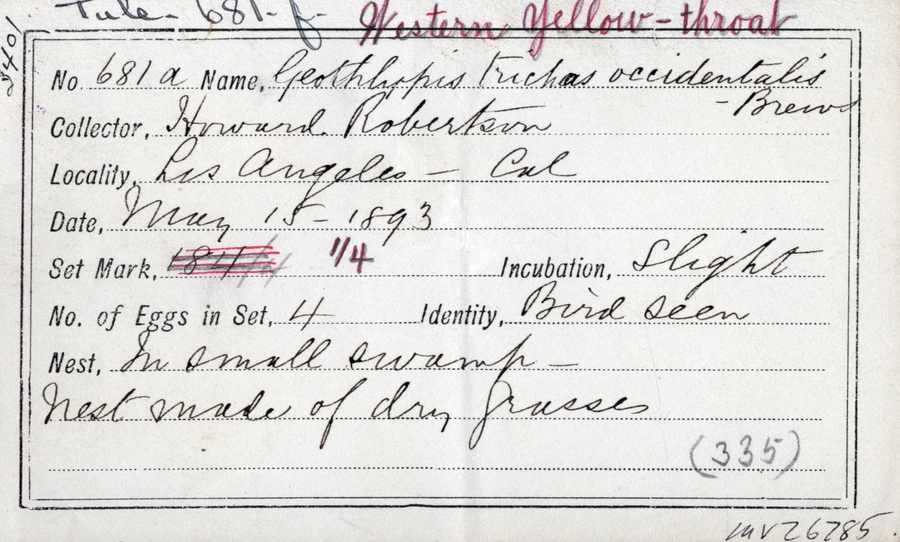 Tule - 681-f- Western Yellow-throat
No. 681 a Name, Geothlypis trichas occidentalis
- Brews
Collector, Howard Robertson
Locality, Los Angeles - Cal
Date, May 15 - 1893
Set Mark, 184/4 1/4 Incubation, Slight
No. of Eggs in Set, 4 Identity, Bird seen
Nest, In small swamp -
Nest made of dry grasses
(335)
MV26285